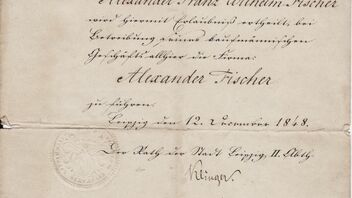 Alexander Franz Wilhelm Fischer
wird hiermit Erlaubniß ertheilt, bei
Betreibung seines kaufmännischen
Geschäfts allhier die Firma:
Alexander Fischer
zu führen.
Leipzig den 12. December 1848.
Der Rath der Stadt Leipzig, II. Abth.
Klinger.